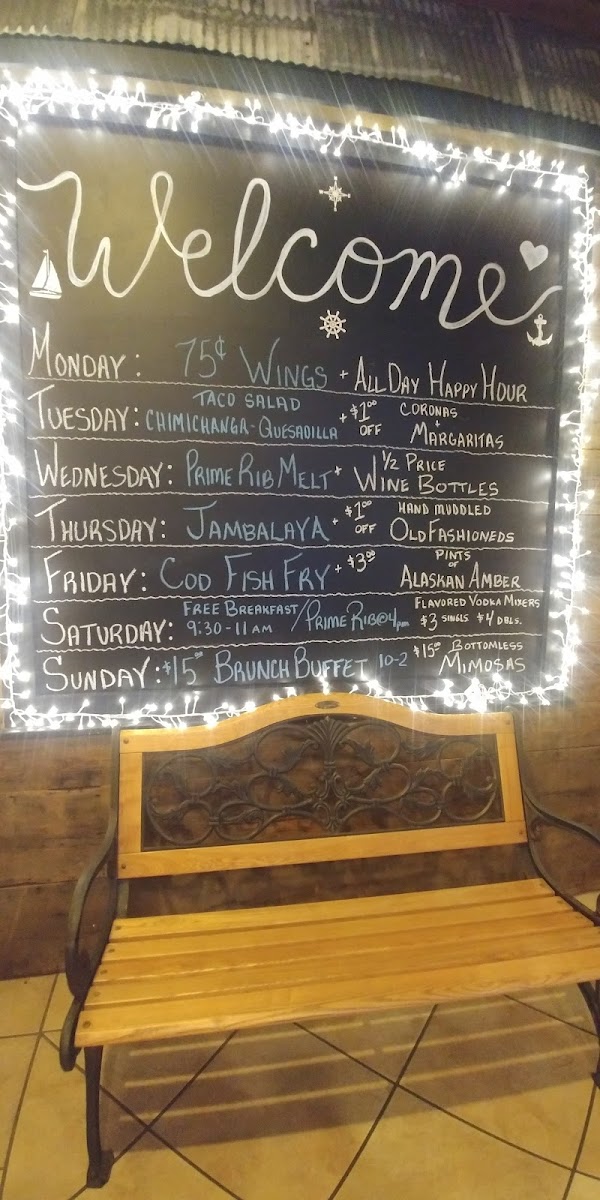 Welcome
MONDAY: 75¢ WINGS + ALL DAY HAPPY HOUR
TUESDAY: TACO SALAD CHIMICHANGA - QUESADILLA + $1.00 OFF CORONAS + MARGARITAS
WEDNESDAY: PRIME RIB MELT + 1/2 PRICE WINE BOTTLES
THURSDAY: JAMBALAYA + $1.00 OFF HAND MUDDLED OLD FASHIONEDS
FRIDAY: COD FISH FRY + $3.00 PINTS OF ALASKAN AMBER
SATURDAY: FREE BREAKFAST 9:30-11 AM / PRIME RIB @ 4pm FLAVORED VODKA MIXERS $3 SINGLS $4 DBLS.
SUNDAY: $15.00 BRUNCH BUFFET 10-2 $15.00 BOTTOMLESS MIMOSAS